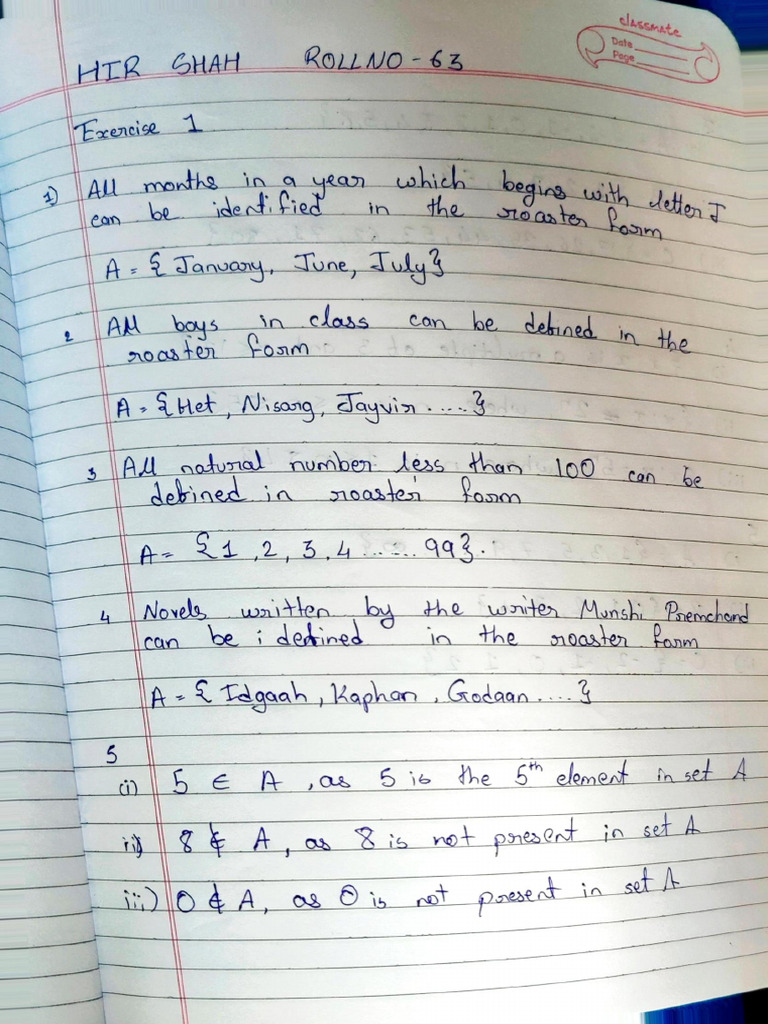 classmate
Date
Page
HIR SHAH ROLLNO - 63
Exercise 1
1) All months in a year which begins with letter J
can be identified in the roaster form
A = { January, June, July}
2 All boys in class can be defined in the
roaster form
A = {Het, Nisarg, Jayvir .....}
3 All natural number less than 100 can be
defined in roaster form
A = {1, 2, 3, 4 ...... 99}.
4 Novels written by the writer Munshi Premchand
can be i defined in the roaster form
A = { Idgaah, Kaphan, Godaan ....}
5
(i) 5 ∈ A, as 5 is the 5th element in set A
ii) 8 ∉ A, as 8 is not present in set A
iii) 0 ∉ A, as 0 is not present in set A